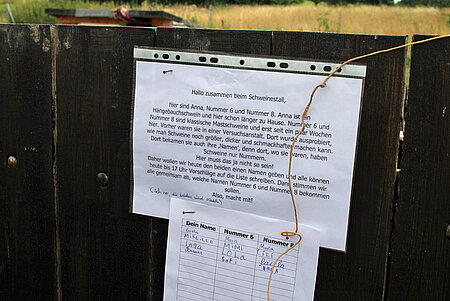 Hallo zusammen beim Schweinestall,
hier sind Anna, Nummer 6 und Nummer 8. Anna ist ein
Hängebauchschwein und hier schon länger zu Hause. Nummer 6 und
Nummer 8 sind klassische Mastschweine und erst seit ein paar Wochen
hier. Vorher waren sie in einer Versuchsanstalt. Dort wurde ausprobiert,
wie man Schweine noch größer, dicker und schmackhafter machen kann.
Dort bekamen sie auch ihre ‚Namen', denn dort, wo sie waren, haben
Schweine nur Nummern.
Hier muss das ja nicht so sein!
Daher wollen wir heute den beiden einen Namen geben und alle können
heute bis 17 Uhr Vorschläge auf die Liste schreiben. Dann stimmen wir
alle gemeinsam ab, welche Namen Nummer 6 und Nummer 8 bekommen
sollen.
Also, macht mit!
Dein Name Nummer 6 Nummer 8
MIMI LILI
LOLA Paula